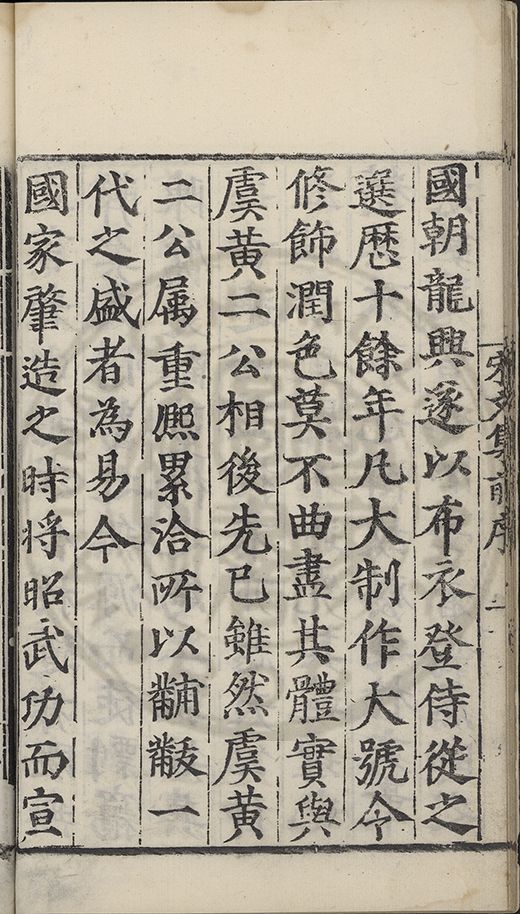 國朝龍興遂以布衣登侍從之
選歷十餘年凡大制作大號令
修飾潤色莫不曲盡其體實與
虞黃二公相後先已雖然虞黃
二公属重熈累洽所以黼黻一
代之盛者為易今
國家肇造之時将昭武功而宣
宋文集前序